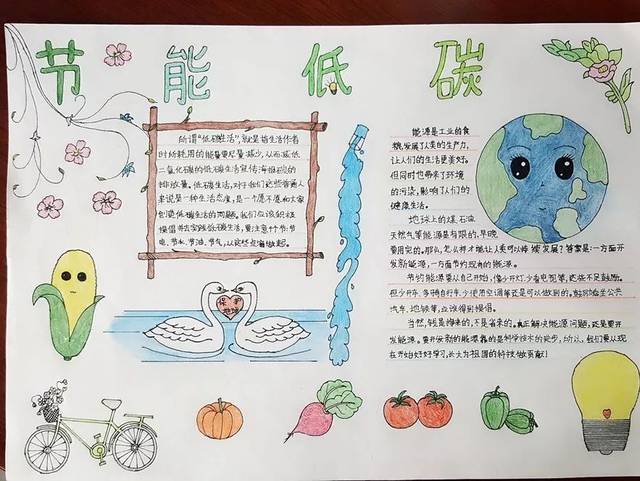 节能低碳
所谓“低碳生活”,就是指生活作者
时所耗用的能量要尽量减少,从而减低
二氧化碳的低碳生活宣传海报碳的
排放量。低碳生活,对于我们这些普通人
来说是一种生活态度,是一个愿不愿和大家
创造低碳生活的问题。我们应该积极
提倡并去实践低碳生活,要注意节
电、节水、节油、节气,从这些点滴做起。
保
能源是工业的食
粮,发展了人类的生产力,
让人们的生活更美好。
但同时也带来了环境
的污染,影响了人们的
健康生活。
地球上的煤石油
天然气等能源是有限的,早晚
要用完的。那么,怎么样才能让人类可以持续发展?答案是:一方面开
发新能源,一方面节约现有的能源。
节约能源要从自己开始,像少开灯,少看电视等,这些不足够的。
但少开车,多骑自行车,少使用空调等还是可以做到的。
汽车,地铁等,应该得到提倡。
当然,钱是挣来的,不是省来的。真正解决能源问题,还是要开
发能源。要开发新的能源靠的是科学技术的进步,所以,我们要从现
在开始好好学习,长大为祖国的科技做贡献!